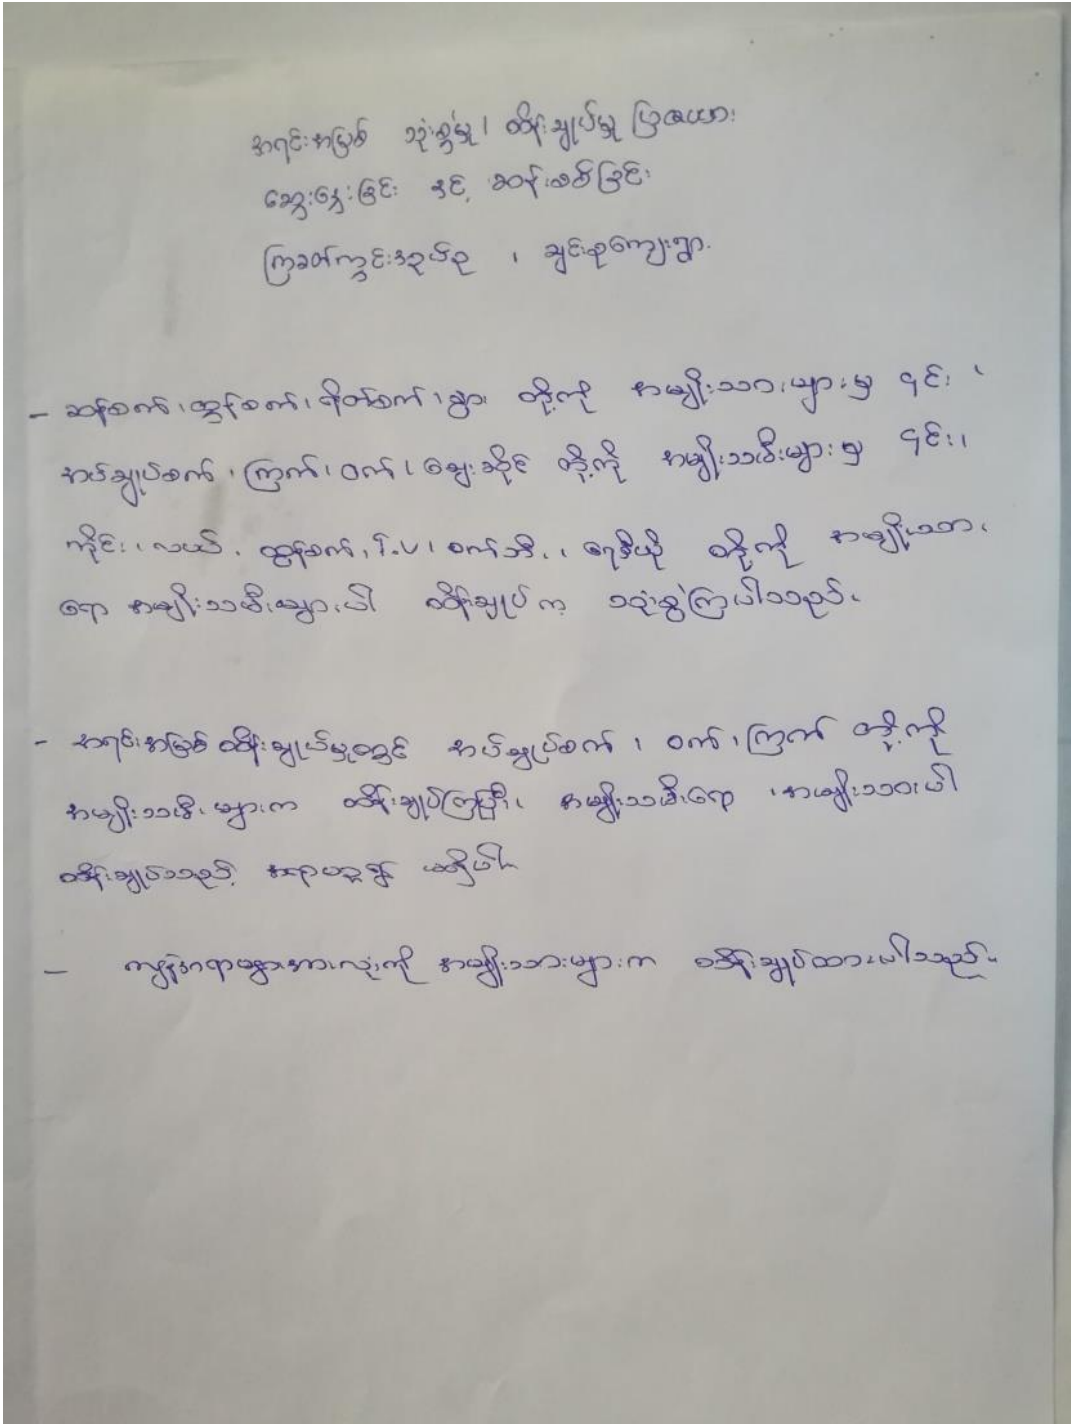 အရင်းအမြစ် သုံးစွဲမှု၊ ထိန်းချုပ်မှု ပြဇယား
ဆွေးနွေးခြင်း နှင့် ဆန်းစစ်ခြင်း
ကြခတ်ကွင်းဒဥယ်ဥ ၊ ချင်းစုကျေးရွာ.
- ဆန်စက်၊ ထွန်စက်၊ ရိတ်စက်၊ နွား တို့ကို အမျိုးသားများမှ ၎င်း ၊
အပ်ချုပ်စက် ၊ ကြက်၊ ဝက်၊ ဈေးဆိုင် တို့ကို အမျိုးသမီးများမှ ၎င်း၊
ကိုင်း၊ လယ်၊ ထွန်စက်၊ T.V၊ စက်ဘီး၊ ရေဒီယို တို့ကို အမျိုးသား
ရော အမျိုးသမီးများပါ ထိန်းချုပ် က သုံးစွဲကြပါသည်။
- အရင်းအမြစ် ထိန်းချုပ်မှုတွင် အပ်ချုပ်စက် ၊ ဝက်၊ ကြက် တို့ကို
အမျိုးသမီးများက ထိန်းချုပ်ကြပြီး၊ အမျိုးသမီးရော ၊ အမျိုးသားပါ
ထိန်းချုပ်သည့် အရာဟူ၍ မရှိပါ။
- ကျန်အရာများအားလုံးကို အမျိုးသားများက ထိန်းချုပ်ထားပါသည်။